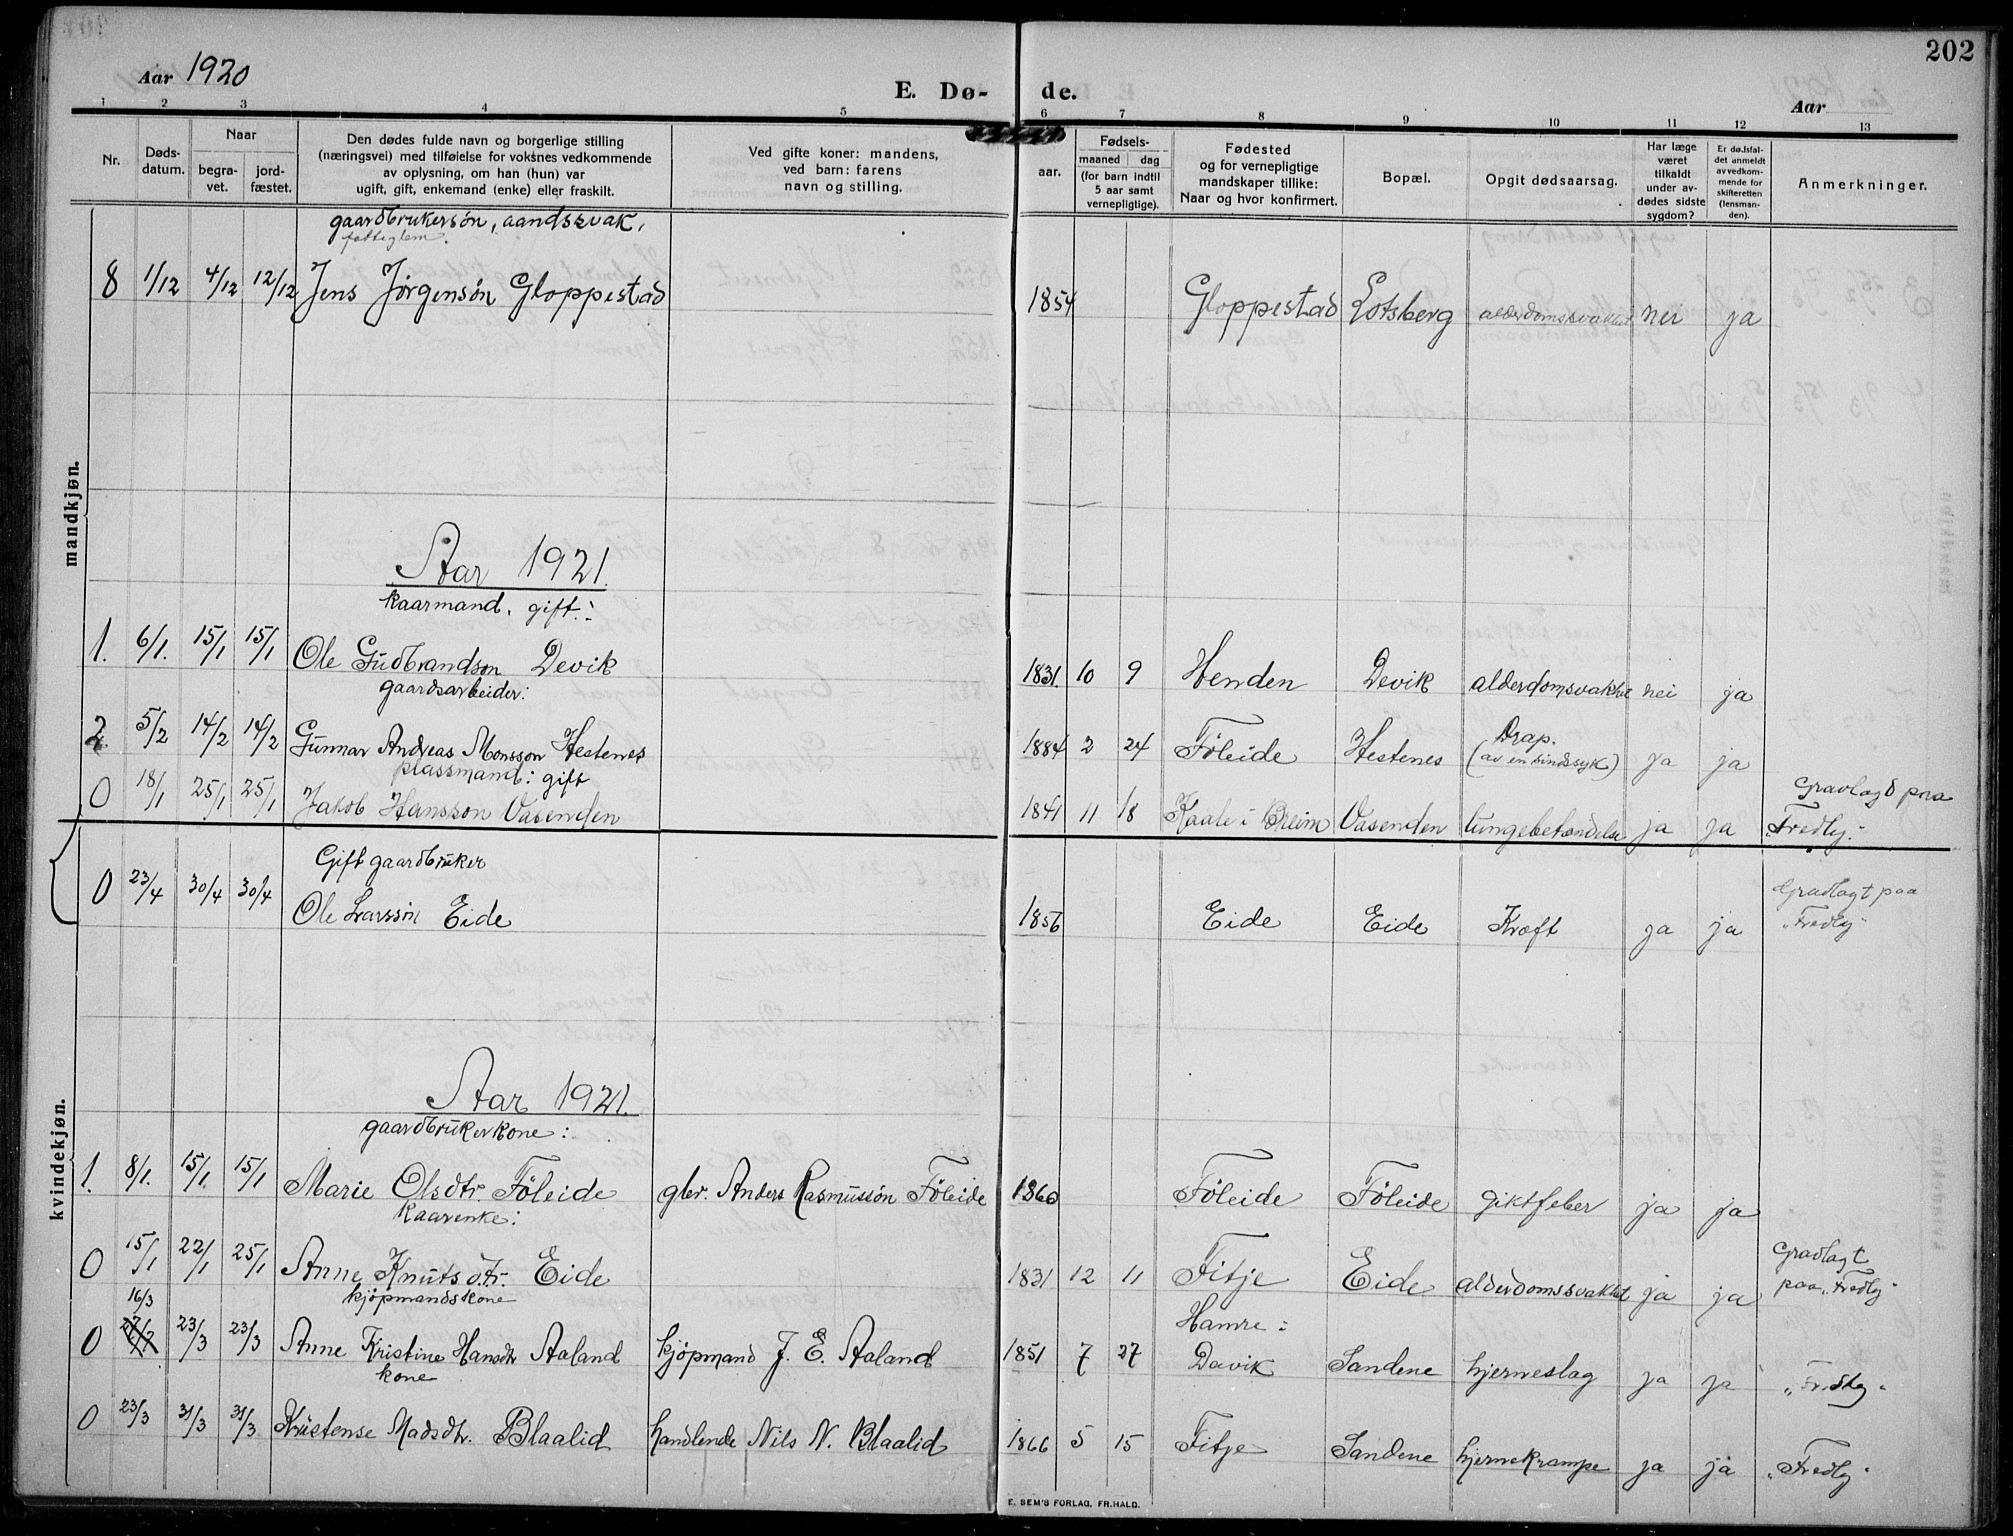 202
Aar 1920
E. Dø-
de.
Aar
1 2 3 4 5 6 7 8 9 10 11 12 13
Nr.
Døds-
datum.
Naar
begra-
vet.
jord-
fæstet.
Den dødes fulde navn og borgerlige stilling
(næringsvei) med tilføielse for voksnes vedkommende
av oplysning, om han (hun) var
ugift, gift, enkemand (enke) eller fraskilt.
Ved gifte koner: mandens,
ved barn: farens
navn og stilling.
aar.
Fødsels-
maaned dag
(for barn indtil
5 aar samt
vernepligtige).
Fødested
og for vernepligtige
mandskaper tillike:
Naar og hvor konfirmert.
Bopæl.
Opgit dødsaarsag.
Har læge
været
tilkaldt
under av-
dødes sidste
sygdom?
Er dødsfal-
det anmeldt
av vedkom-
mende for
skifteretten
(lensman-
den).
Anmerkninger.
mandkjøn.
gaardbrukersøn, aandssvak,
fattiglem.
8 1/12 4/12 12/12 Jens Jørgensøn Gloppestad 1854 Gloppestad Lotsberg alderdomssvakhet nei ja
Aar 1921.
kaarmand, gift:
1. 6/1. 15/1 15/1 Ole Gudbrandson Devik 1831. 10 9 Henden Devik alderdomsvakhet nei ja
gaardsarbeider:
2. 5/2 14/2 14/2 Gunnar Andreas Monsson Hestenes 1884 2 24 Föleide Hestenes Drap. (av en sindssyk) ja ja
plassmand: gift
0 18/1 25/1 25/1 Jakob Hansson Vasenden 1841 11 18 Kaale i Breim Vasenden lungebetændelse ja ja Gravlagd paa
"Fredly".
Gift gaardbruker
0 23/4 30/4 30/4 Ole Larssön Eide 1856 Eide Eide Kræft ja ja Gravlagt paa
"Fredly"
kvindekjøn.
Aar 1921.
gaardbrukerkone:
1. 8/1. 15/1. 15/1 Marie Olsdtr. Föleide gbr. Anders Rasmussön Föleide 1860 Föleide Föleide giktfeber ja ja
kaarenke:
0 15/1 22/1 25/1 Anne Knutsdtr. Eide 1831 12 11 Fitje Eide alderdomssvakhet ja ja Gravlagt
paa "Fredly"
16/3 kjöpmandskone
0 23/3 23/3 Anne Kristine Hansdtr Aaland kjöpmand J. E. Aaland 1851 7 27 Hamre:
Davik Sandene hjerneslag ja ja "Fredly"
kone
0 23/3 31/3 31/3 Kristense Madsdtr. Blaalid handlende Nils N. Blaalid 1866 5 15 Fitje Sandene hjernekrampe ja ja "Fredly"
E. SEM'S FORLAG, FR.HALD.